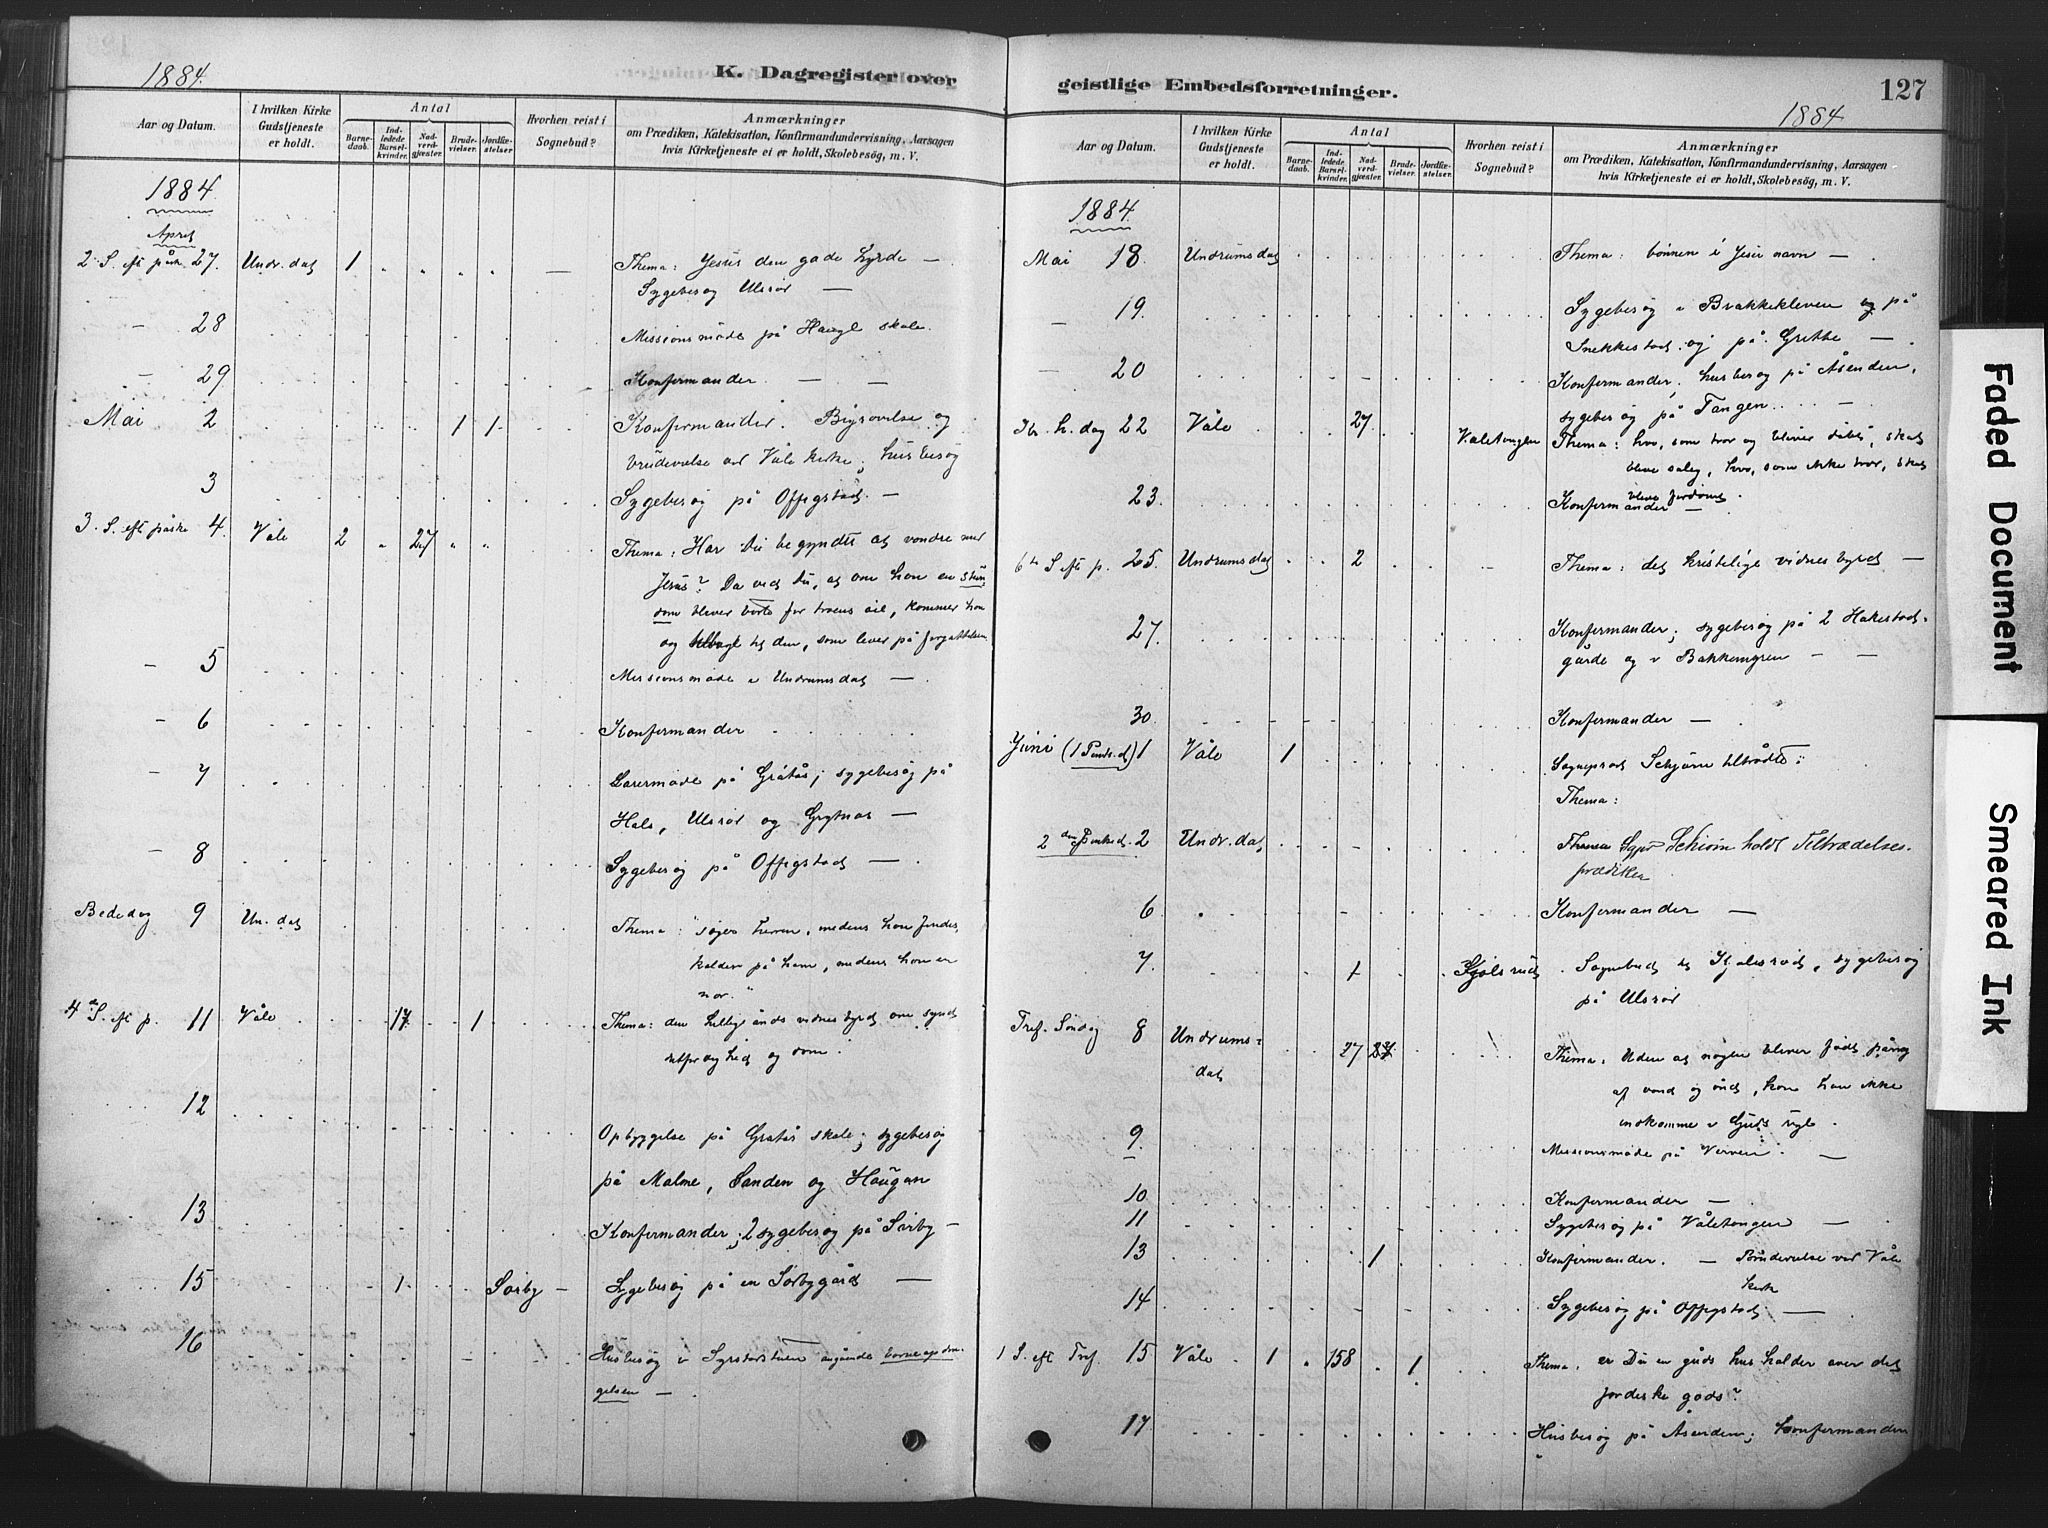 1884.
K. Dagregister over
Aar og Datum.
I hvilken Kirke Gudstjeneste er holdt.
Antal
Barnedaab.
Indledede Barselkvinder.
Nadverdgjæster.
Brudevielser.
Jordfæstelser
Hvorhen reist i Sognebud?
Anmærkninger
om Prædiken, Katekisation, Konfirmandundervisning, Aarsagen
hvis Kirketjeneste ei er holdt, Skolebesög, m. V.
1884.
April
2. S. eft påske 27. Undr.dal 1 Thema: Jesus den gode hyrde —
Sygebesøg Ulsrør —
28 Missionsmøde på Haugl skole.
29 Konfermander. — —
Mai 2 1 1 Konfermander. Begravelse og
brudevielse ved Våle kirke; husbesøg
3 Sygebesøg på Offigstad. —
3. S. eft påske 4. Våle 2 27 Thema: Har Du begyndt at vandre med
Jesus? Da ved Du, at om han en stun-
dom bliver borte for troens øie, kommer han
og tilbage til den, som lever på forjættelsen
5 Missionsmøde i Undrumsdal —
6 Konfermander
7 Lærermøde på Gråtås; sygebesøg på
Hals, Ulsrør og Grytnes —
8 Sygebesøg på Offigstad —
Bededag 9 Un. dal Thema: "søger herren, medens han findes,
kalder på ham, medens han er
nær."
4de S. eft p. 11 Våle 17 1 Thema: den hellige ånds vidnesbyrd om synd
retfærdighed og dom.
12 Opbyggelse på Gråtås skole; sygebesøg
på Malme, Sanden og Haugan
13 Konfermander; 2 sygebesøg på Sørby —
15 1 Sørby — Sygebesøg på en Sørbygård —
16 Husbesøg i angående børneopdra-
gelsen —
geistlige Embedsforretninger.
127
1884
Aar og Datum.
I hvilken Kirke Gudstjeneste er holdt.
Antal
Barnedaab.
Indledede Barselkvinder.
Nadverdgjæster.
Brudevielser.
Jordfæstelser.
Hvorhen reist i Sognebud?
Anmærkninger
om Prædiken, Katekisation, Konfirmandundervisning, Aarsagen
hvis Kirketjeneste ei er holdt, Skolebesög, m. V.
1884.
Mai 18. Undrumsdal Thema: bønnen i Jesu navn —
19. Sygebesøg i Brækkekleven og på
Snekkestad og på Grette —
20 Konfermander. husbesøg på Åsenden,
sygebesøg på Tangen. —
Kr. h. dag 22 Våle 27 Våletangen Thema: hvo, som tror og bliver døbt, skal
blive salig, hvo, som ikke tror, skal
blive fordømt.
23. Konfermander —
6te S eft p. 25. Undrumsdal 2 Thema: det kristelige vidnesbyrd —
27. Konfermander; sygebesøg på 2 Hakestad-
gårde og i Bakkeengen — —
30. Konfermander —
Juni (1 Pinds.d) 1 Våle 1 Sogneprest Schjørn tiltrådte.
Thema:
2den Pinsed. 2 Undr.dal, Thema Sgpr Schiørn holdt Tiltrædelses-
prædiken
6 Konfermander —
7. 1 Kjølsrud Sognebud til Kjølsrød, sygebesøg
på Ulsrør
Tref. Søndag 8 Undrums-
dal 27 Thema: Uden at nogen bliver født påny
af vand og ånd, kan han ikke
indkomme i Guds rige.
9. Missionsmøde på Verven. —
10 Konfermander —
11 Sygebesøg på Våletangen —
13 1 Konfermander. — Brudevielse ved Våle
kirke
14 Sygebesøg på Offigstad —
1 S. eft Tref. 15 Våle 1 158 1 Thema. er Du en guds husholder over det
jordiske gods?
17 Husbesøg på Åsenden; konfermander
Faded Document
Smeared Ink